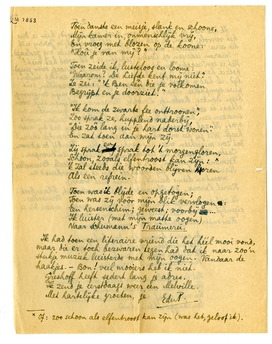 Toen danste een meisje, slank en schoone,
Mijn kamer in, onmenschelijk vrij,
En vroeg met blozen op de koone:
"Houd je van mij?"
Toen zeide ik, lusteloos en loome:
"Waarom? De liefde kent mij niet."
Ze zei: "'k Ben een die je volkomen
Begrijpt en je doorziet.
"Ik kom de zwarte fee onttroonen",
Zoo sprak ze, huppelend naderbij,
"Die zoo lang in je hart dorst wonen"
En zat toen aan mijn zij.
Zij sprak, sprak tot 't morgengloren,
Schoon, zooals elfenbroost kan zijn :*
'k Zal steeds die woorden blijven hooren
Als een refrein.
Toen was ik blijde en opgetogen;
Toen was zij vóór mijn blik vervlogen
Een hersenschim; geweest; voorby
Ik luister met mijn matte oogen
Naar Schumann's Träumerei.
Ik had toen een literaire vriend die het heel mooi vond,
maar hij er toch bezwaren tegen had dat ik naar zoo'n
stukje muziek luisterde met mijn oogen. Vandaar de
haakjes. – Bon! veel mooier is het niet.
Eeshoff heeft sedert lang je adres.
Ik zend je eerstdaags weer een Melville.
Met hartelijke groeten, je
* Of: zoo schoon als elfenbroost kan zijn (was het, geloof ik).